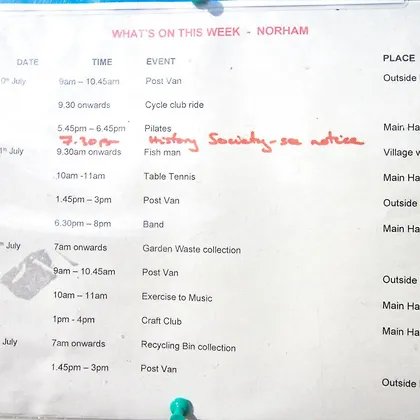 WHAT'S ON THIS WEEK - NORHAM
DATE TIME EVENT PLACE
0th July 9am – 10.45am Post Van Outside
9.30 onwards Cycle club ride
5.45pm – 6.45pm Pilates Main Ha
7.30pm History Society - see notice
1th July 9.30am onwards Fish man Village v
10am -11am Table Tennis Main Ha
1.45pm – 3pm Post Van Outside
6.30pm – 8pm Band Main Ha
th July 7am onwards Garden Waste collection
9am – 10.45am Post Van Outside
10am – 11am Exercise to Music Main Ha
1pm - 4pm Craft Club Main Ha
July 7am onwards Recycling Bin collection
1.45pm – 3pm Post Van Outside